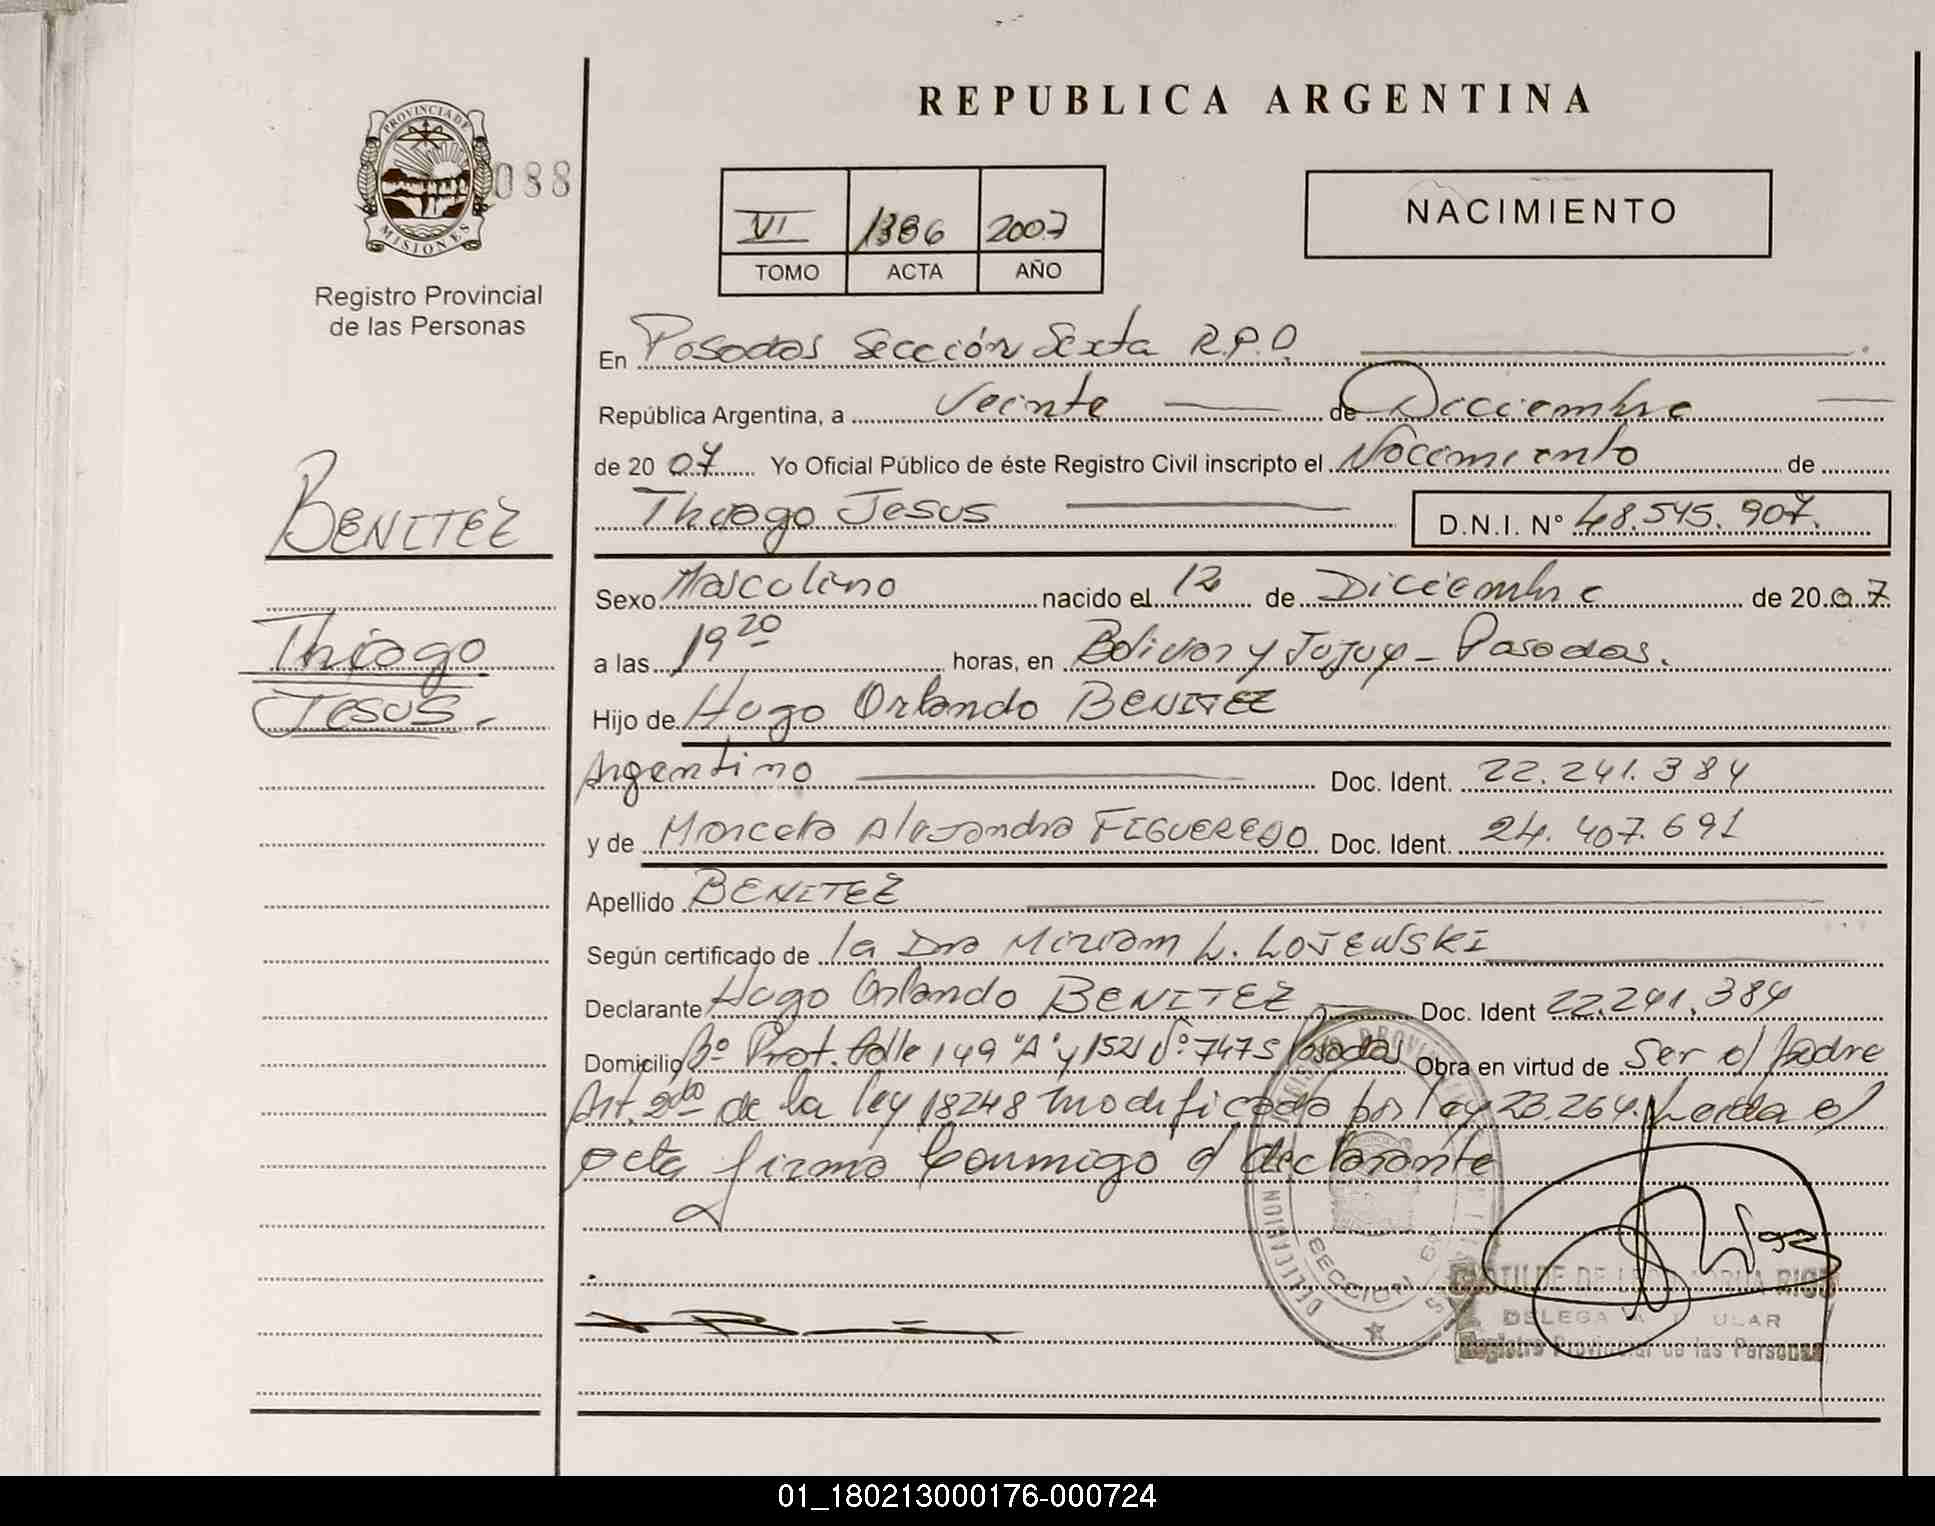 REPUBLICA ARGENTINA
PROVINCIA DE
MISIONES
088
Registro Provincial
de las Personas
VI 1386 2007
TOMO ACTA AÑO
NACIMIENTO
En Posadas Sección Sexta R.P.O.
República Argentina, a Veinte de Diciembre
de 2007 Yo Oficial Público de éste Registro Civil inscripto el Nacimiento de
Thiago Jesus D.N.I. N° 48.545.907.
BENITEZ
Thiago
Jesus.
Sexo Masculino nacido el 12 de Diciembre de 2007
a las 19 20 horas, en Bolivar y Jujuy - Posadas.
Hijo de Hugo Orlando BENITEZ
Argentino Doc. Ident. 22.241.384
y de Marcela Alejandra FIGUEREDO Doc. Ident. 24.407.691
Apellido BENITEZ
Según certificado de la Dra Miriam L. LOJEWSKI
Declarante Hugo Orlando BENITEZ Doc. Ident 22.241.384
Domicilio Bº Prot. Calle 149 "A" y 152 Posadas Obra en virtud de Ser el padre
Art. 2do de la ley 18248 modificada por ley 23.264. Leida el
acta firma Conmigo el declarante
SECCION
DELEGA ULAR
Registro Provincial de las Personas
01_180213000176-000724